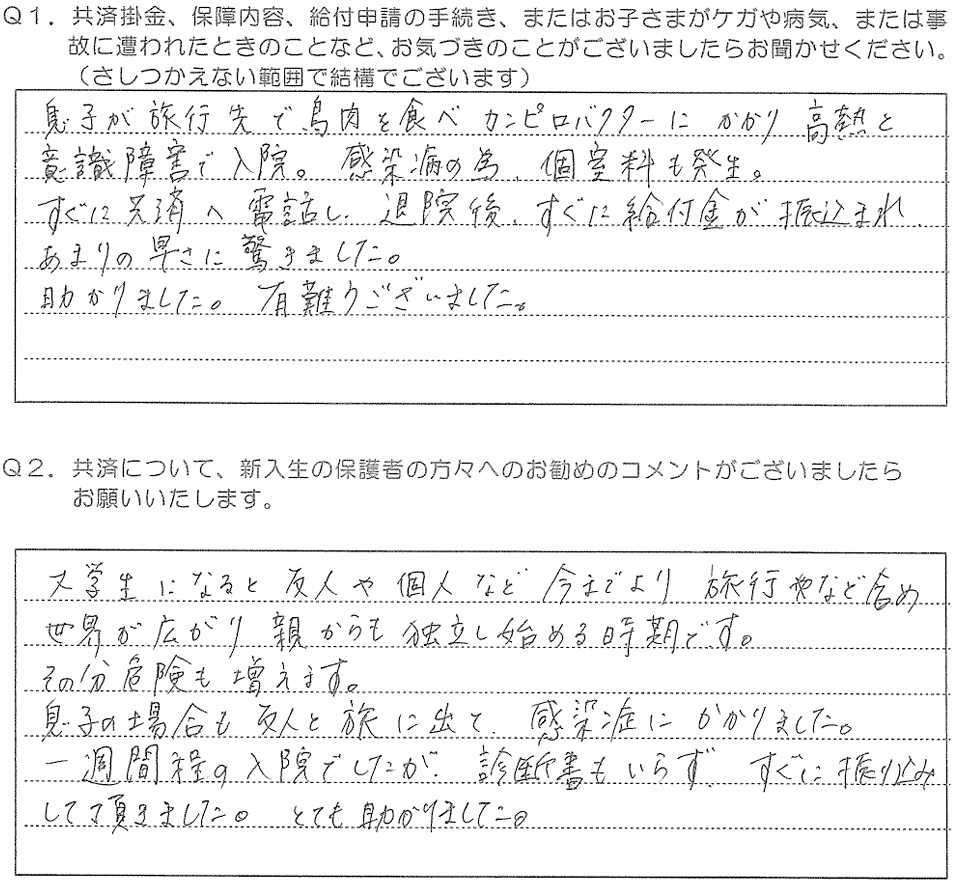 Q1. 共済掛金、保障内容、給付申請の手続き、またはお子さまがケガや病気、または事
故に遭われたときのことなど、お気づきのことがございましたらお聞かせください。
（さしつかえない範囲で結構でございます）
息子が旅行先で鳥肉を食べカンピロバクターにかかり高熱と
意識障害で入院。感染病の為、個室料も発生。
すぐに共済へ電話し、退院後、すぐに給付金が振込まれ、
あまりの早さに驚きました。
助かりました。有難うございました。
Q2. 共済について、新入生の保護者の方々へのお勧めのコメントがございましたら
お願いいたします。
大学生になると友人や個人など今までより旅行やなど含め
世界が広がり親からも独立し始める時期です。
その分危険も増えます。
息子の場合も友人と旅に出て、感染症にかかりました。
一週間程の入院でしたが、診断書もいらず、すぐに振り込み
して頂きました。とても助かりました。